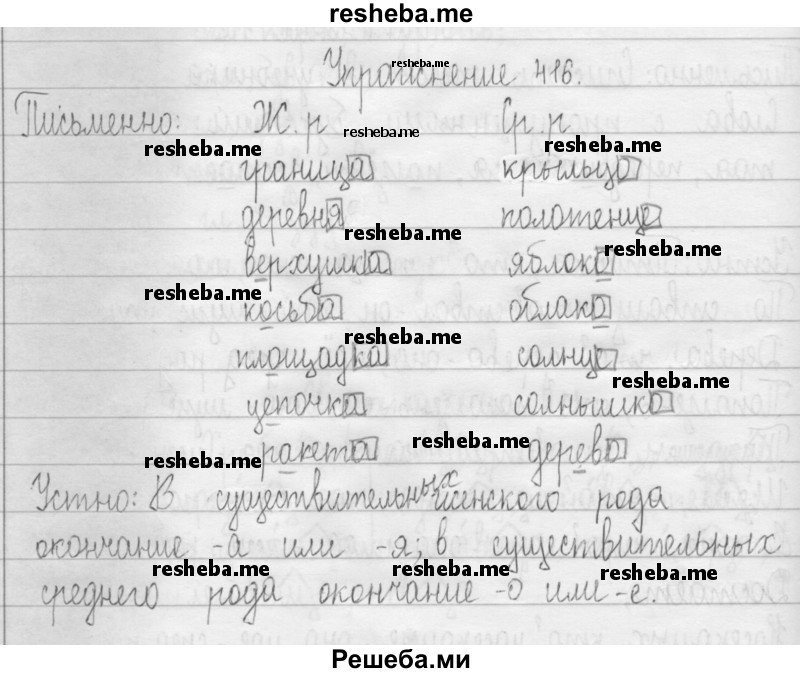 resheba.me
Упражнение 416. resheba.me
Письменно: Ж.р Ср.р
resheba.me resheba.me resheba.me
граница крыльцо
деревня полотенце
resheba.me resheba.me
верхушка яблоко
resheba.me
косьба облако
resheba.me
площадка солнце
resheba.me
цепочка солнышко
resheba.me
ракета дерево
resheba.me
Устно: В существительных женского рода
resheba.me
окончание -а или -я; в существительных
resheba.me resheba.me resheba.me
среднего рода окончание -о или -е.
Решеба.ми